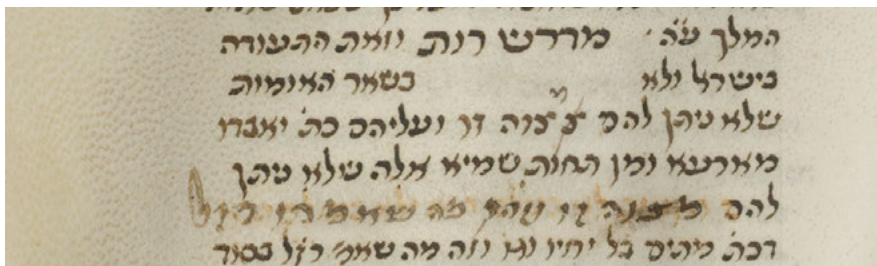 המלך ע"ה מדרש רות וזאת התעודה
בישראל ולא בשאר האומות
שלא ניתן להם מצוה זו ועליהם כת' יאבדו
מארעא ומן תחות שמיא אלה שלא ניתן
להם מצוה זו וזהו מה שאמרו רז"ל
דכת' מתים בל יחיו וגו' וזה מה שאמ' רז"ל בסוד